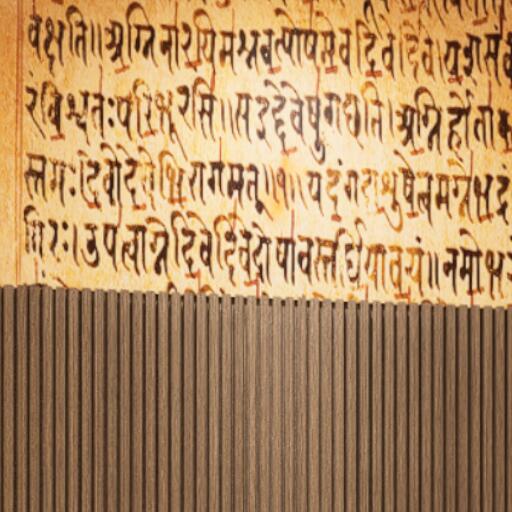 वक्षति॥अग्निनारयिमश्नवत्पोषमेवदिवेदिवे।यशसंव
रंविश्वतःपरिभूरसि॥सइद्देवेषुगच्छति।अग्निर्होताक
स्तमः।देवोदेवेभिरागमत्॥१॥यदंगदाशुषेत्वमग्नेभद्रं
गिरः।उपत्वाग्नेदिवेदिवेदोषावस्तर्धियावयं॥नमोभर